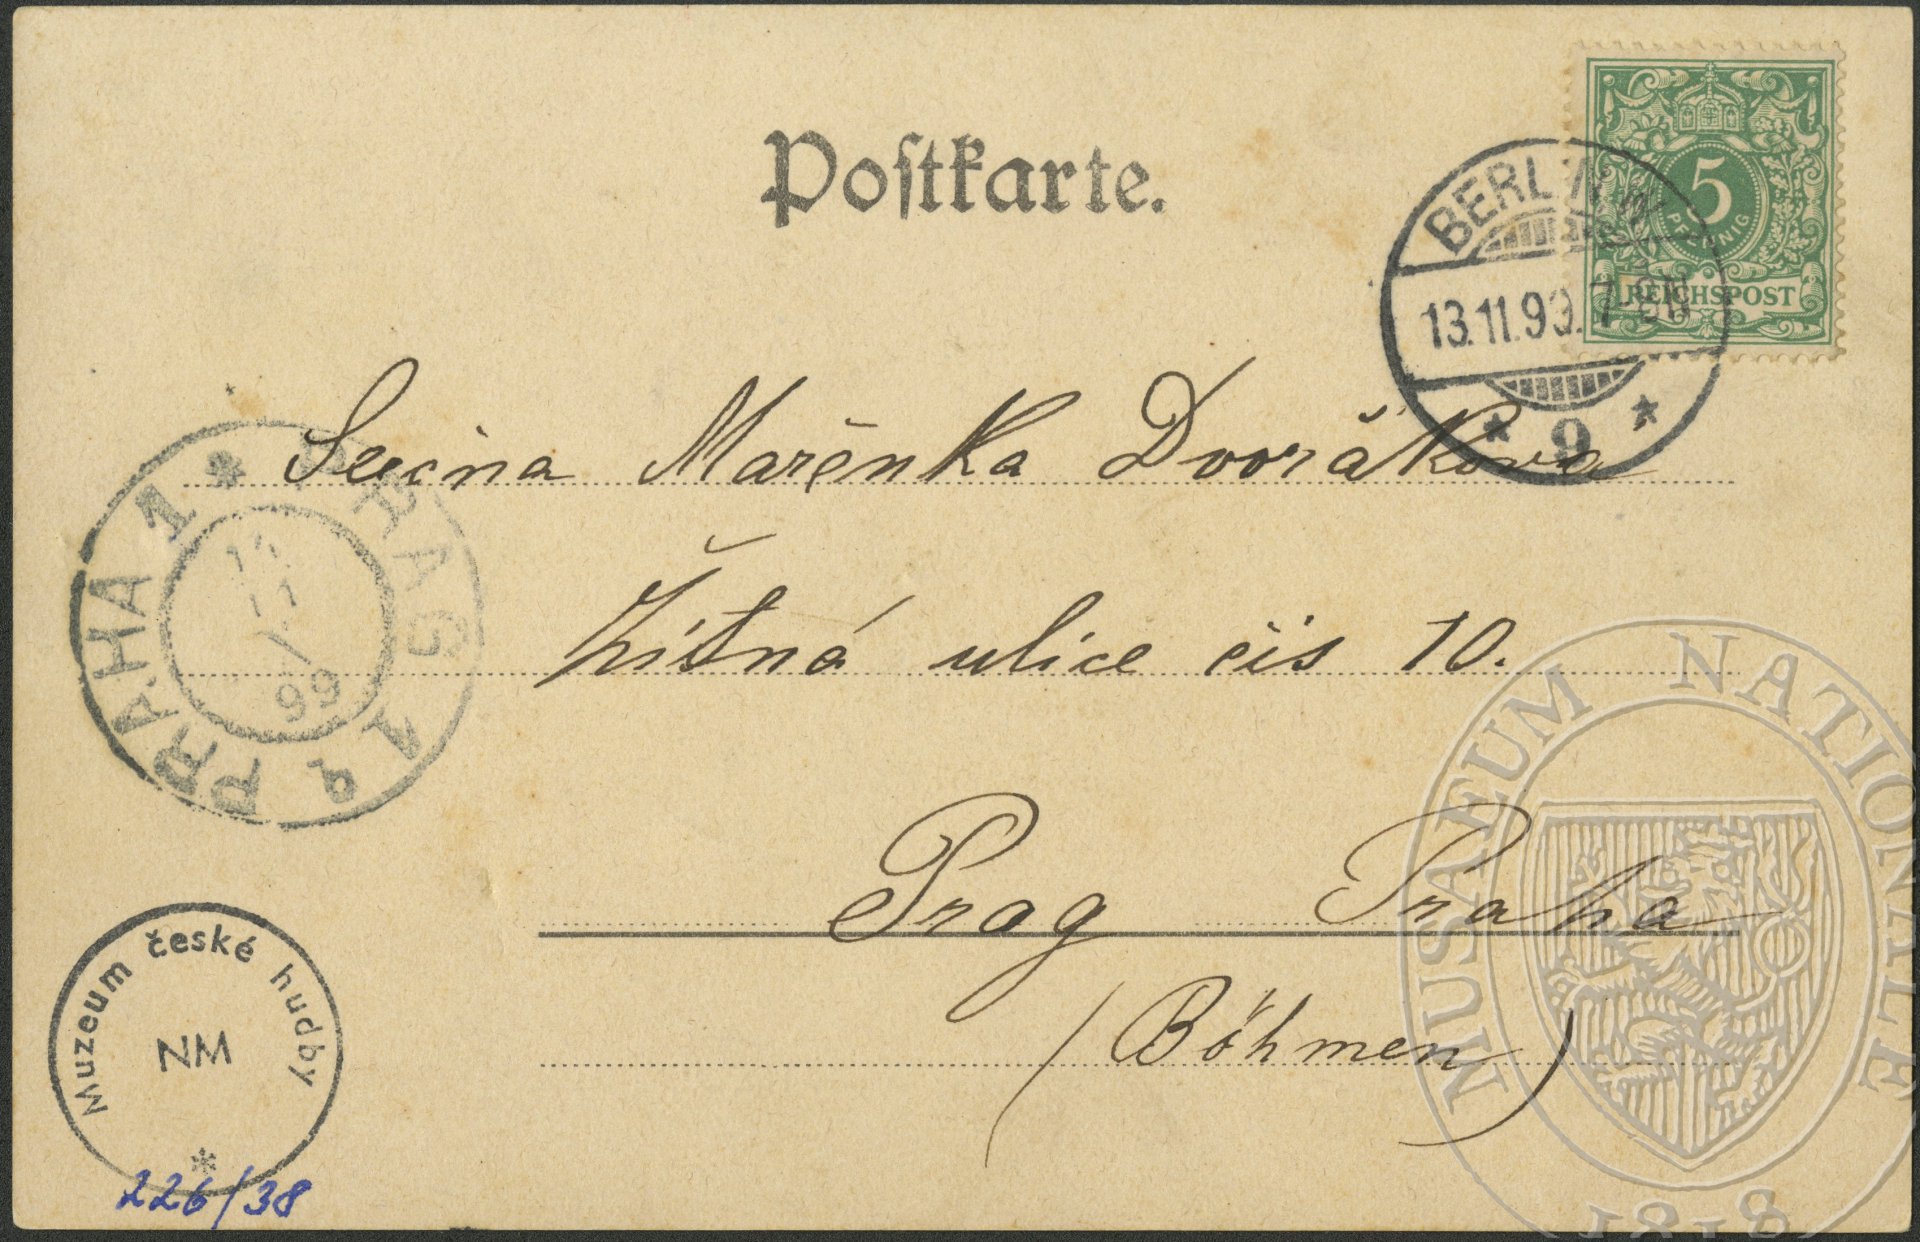 Postkarte.
5
PFENNIG
REICHSPOST
BERLIN W
13.11.99. 7-8N
* 9 *
Slečna Mařenka Dvořákova
Žitná ulice čis 10.
Prag Praha
(Böhmen)
PRAHA 1 * PRAG 1
11
99
Muzeum české hudby
NM
*
226/38
MUSAEUM NATIONALE
1818